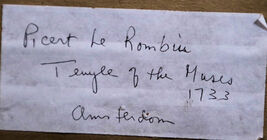 Picert Le Rombin
Temple of the Muses
1733
Amsterdam